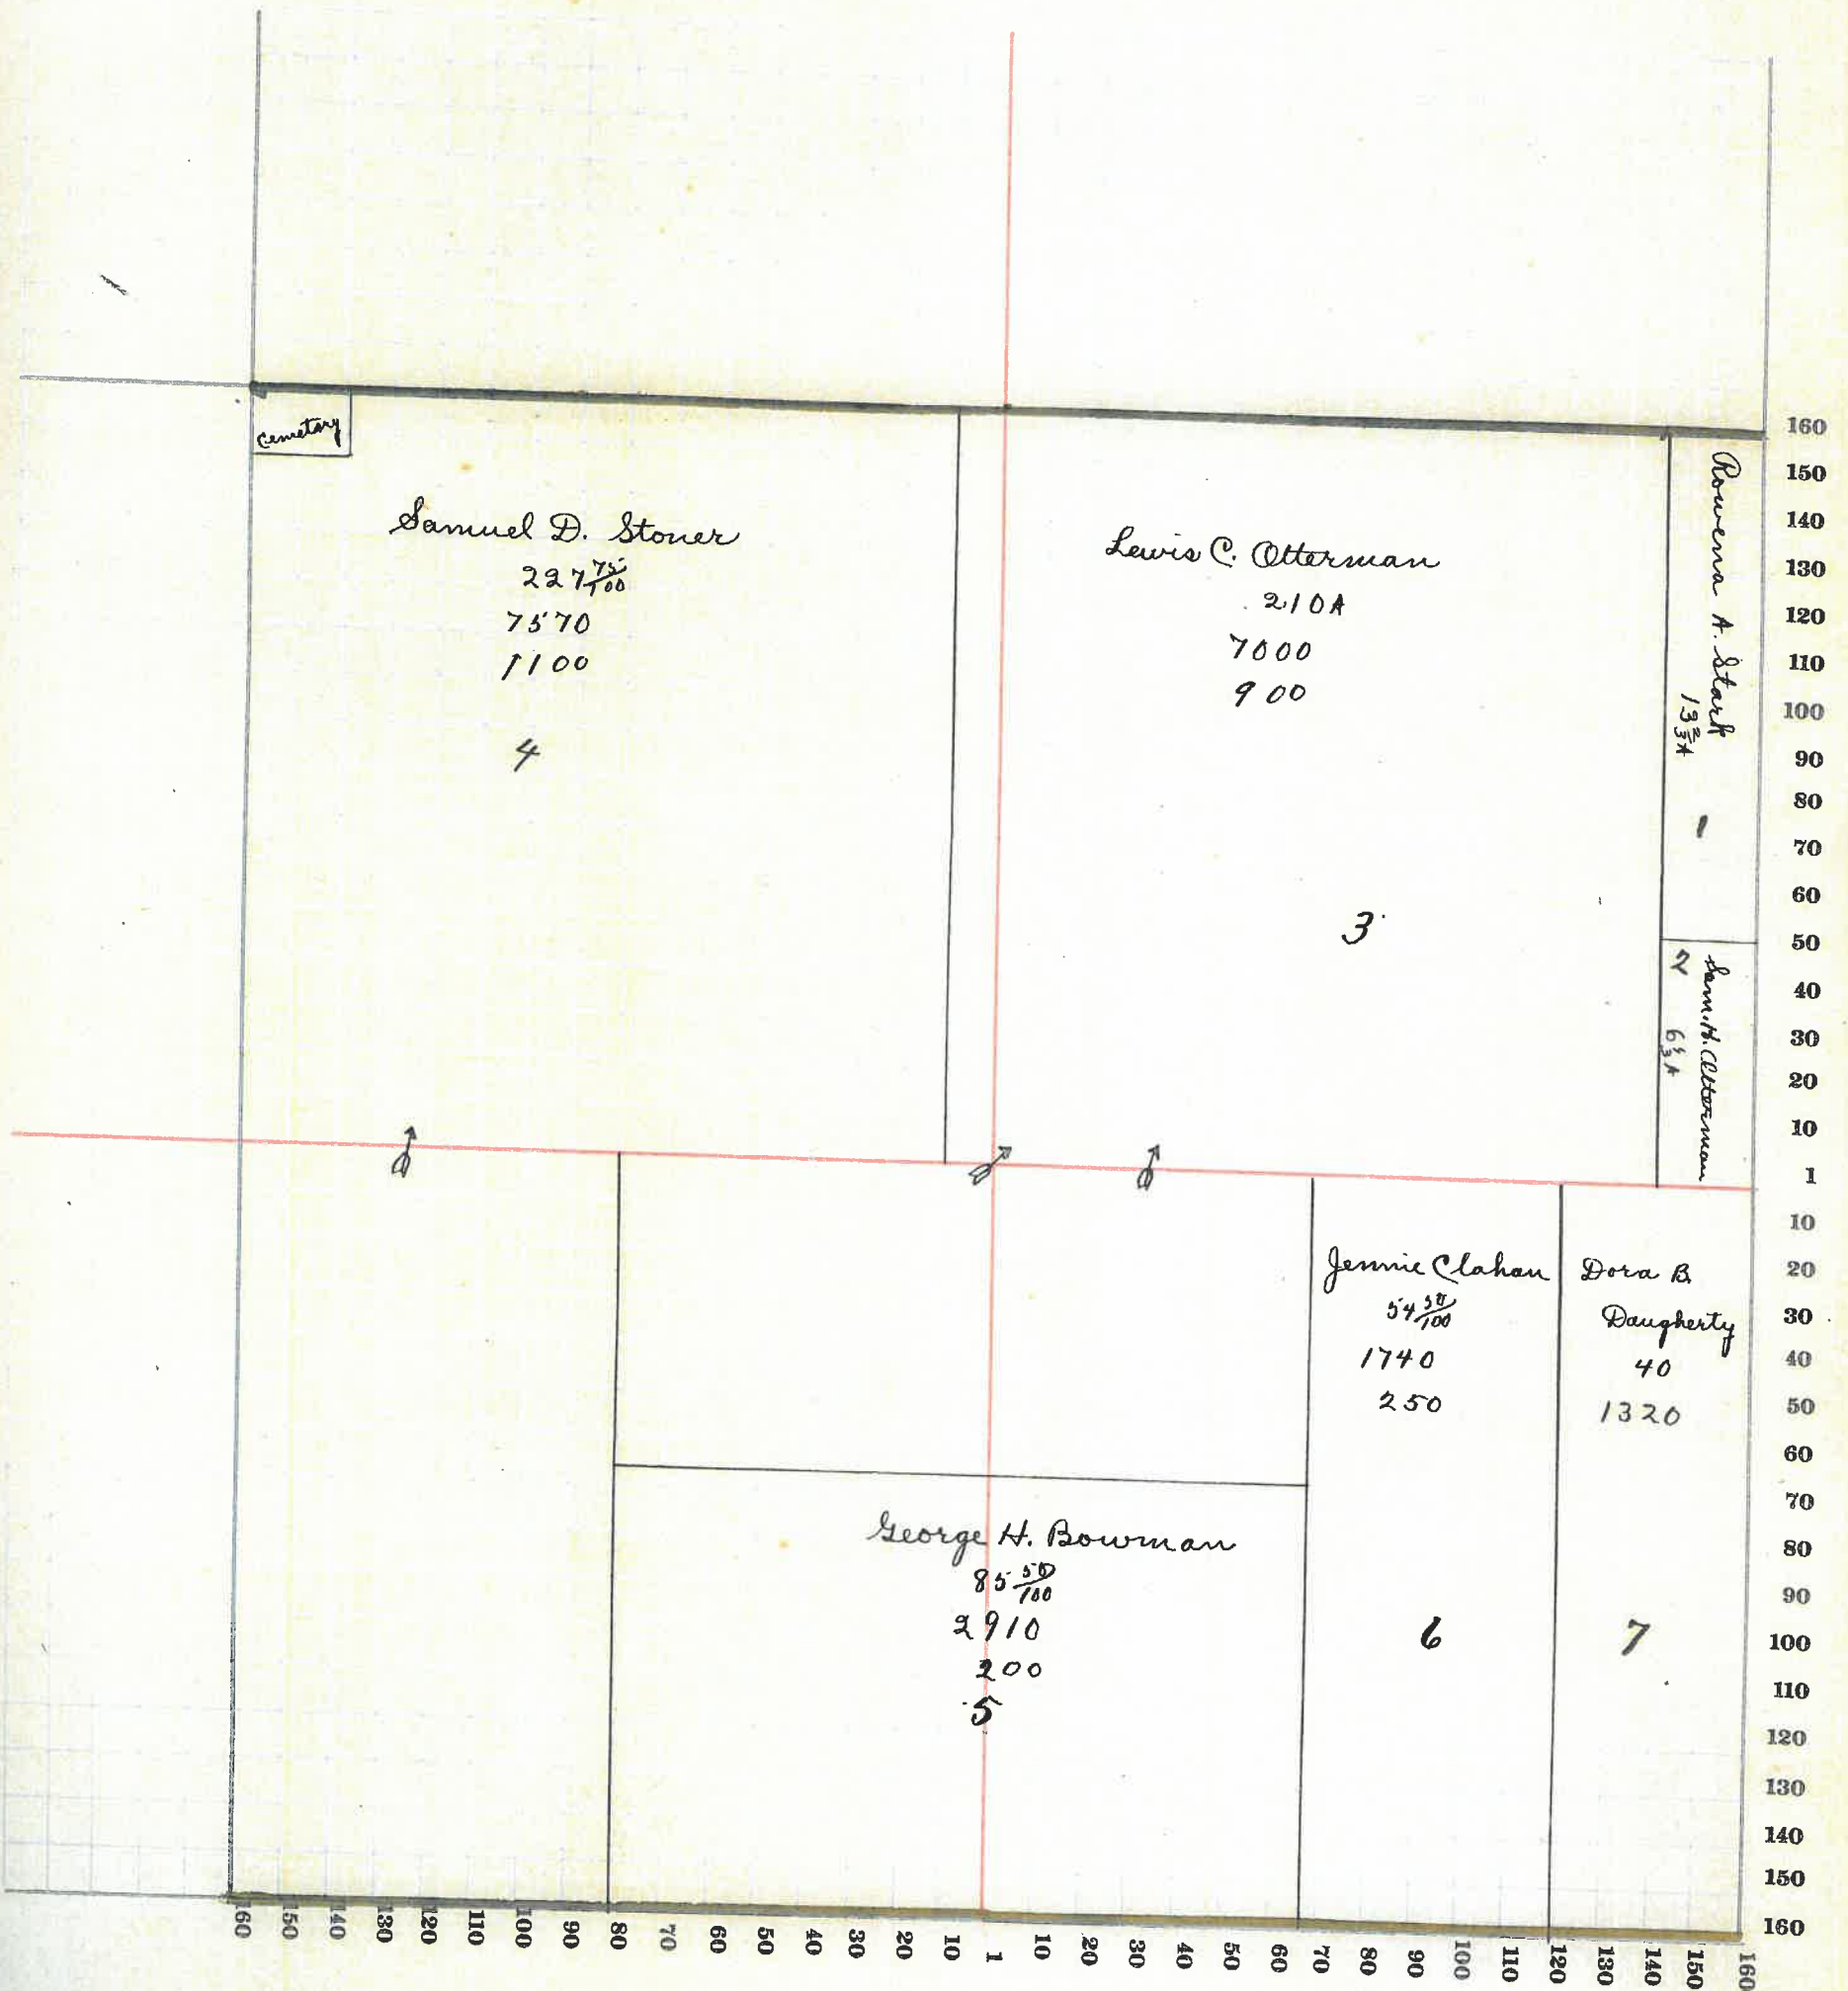 Cemetary
Samuel D. Stoner
227 75/100
7570
1100
4
Lewis C. Otterman
210A
7000
900
3
Rowena A. Stark
13 2/3 A
1
Sam. H. Otterman
2
6 1/3 A
Jennie Clahan
54 50/100
1740
250
6
Dora B.
Daugherty
40
1320
7
George H. Bowman
85 50/100
2910
200
5
160
150
140
130
120
110
100
90
80
70
60
50
40
30
20
10
1
10
20
30
40
50
60
70
80
90
100
110
120
130
140
150
160
160 150 140 130 120 110 100 90 80 70 60 50 40 30 20 10 1 10 20 30 40 50 60 70 80 90 100 110 120 130 140 150 160